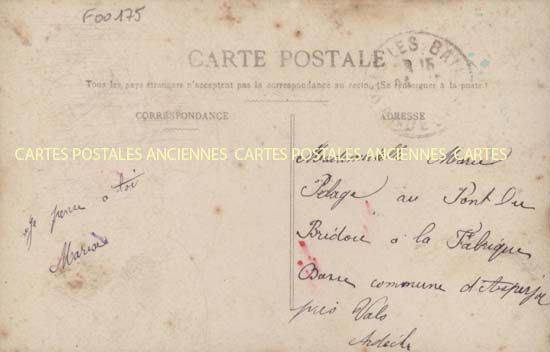 F00175
CARTE POSTALE
LES BAI
Tous les pays étrangers n'acceptent pas la correspondance au recto. (Se renseigner à la poste)
CORRESPONDANCE
ADRESSE
CARTES POSTALES ANCIENNES CARTES POSTALES ANCIENNES CARTES POSTALES ANCIENNES
Je pense a toi
Marius
Mademoiselle Marie
Pelage au Pont Du
Bridou a la Fabrique
Basse commune d'Asperjoc
près Vals
Ardèche